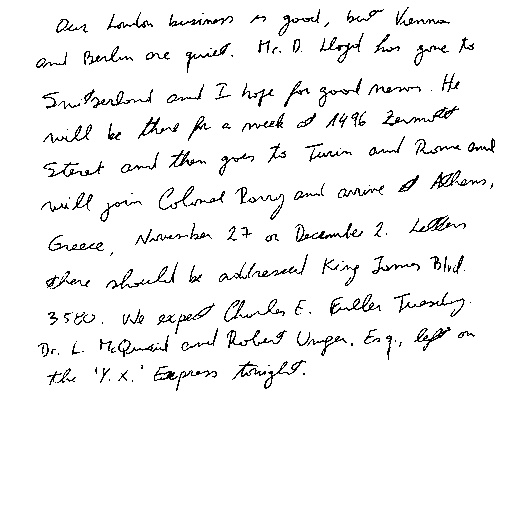 Our London business is good, but Vienna
and Berlin are quiet. Mr. D. Lloyd has gone to
Switzerland and I hope for good news. He
will be there for a week at 1496 Zermott
Street and then goes to Turin and Rome and
will join Colonel Parry and arrive at Athens,
Greece, November 27 or December 2. Letters
there should be addressed King James Blvd.
3580. We expect Charles E. Fuller Tuesday.
Dr. L. McQuaid and Robert Unger, Esq., left on
the 'Y.X.' Express tonight.